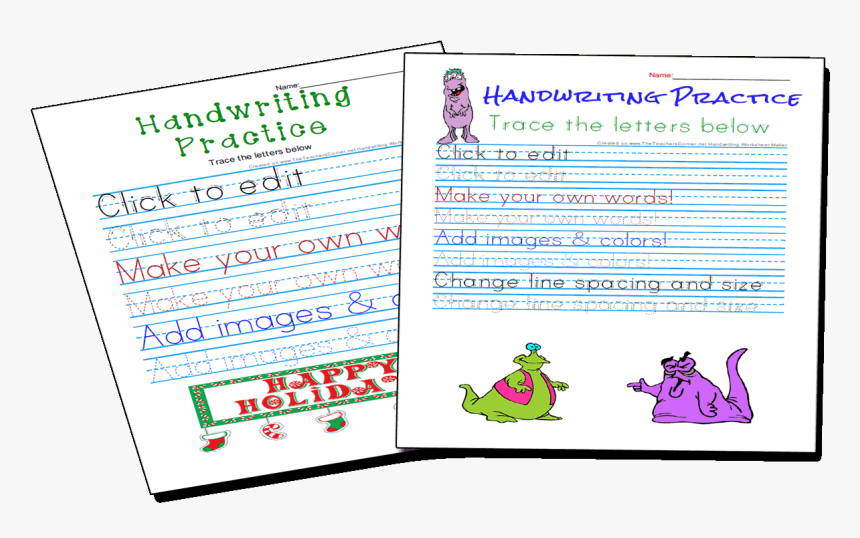 Name:
Handwriting
Practice
Trace the letters below
Created on www.TheTeachersCorner.net Handwriting Worksheet
Click to edit
Click to edit
Make your own w
Make your own w
Add images &
Add images &
HAPPY
HOLIDA
Name:
Handwriting Practice
Trace the letters below
Created on www.TheTeachersCorner.net Handwriting Worksheet Maker
Click to edit
Click to edit
Make your own words!
Make your own words!
Add images & colors!
Add images & colors!
Change line spacing and size
Change line spacing and size